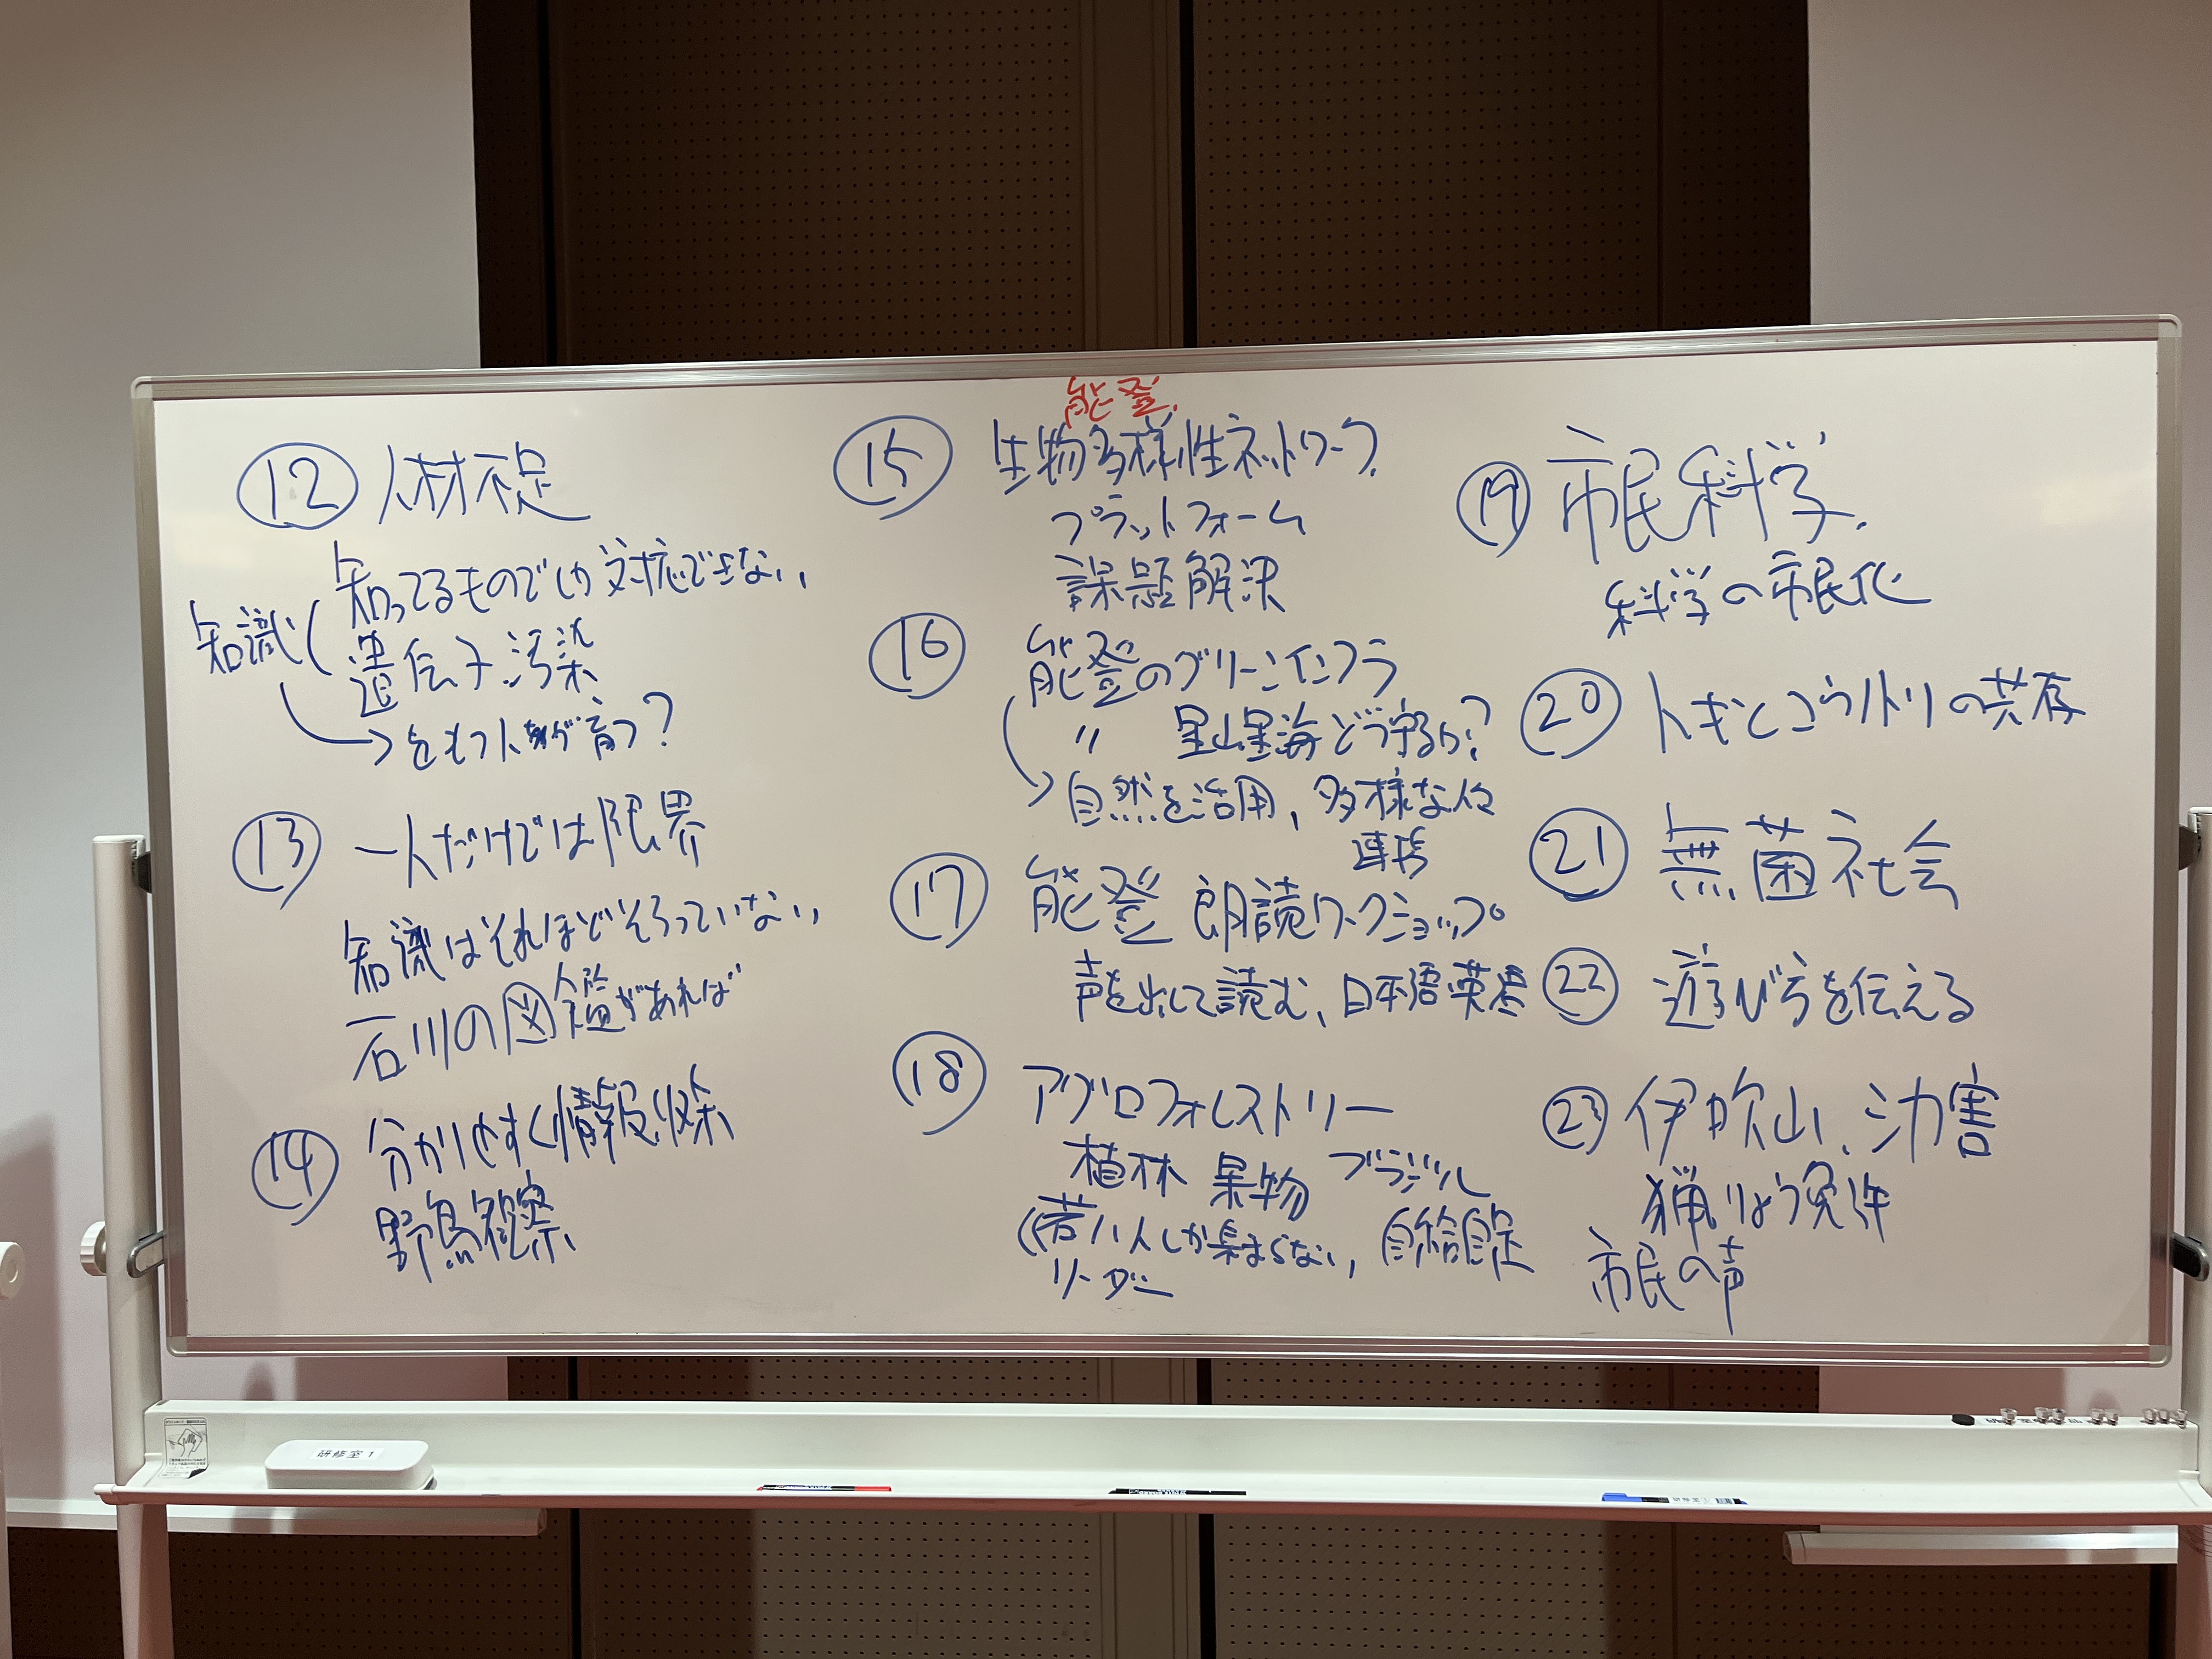 ⑫ 人材不足
知ってるものでしか対応できない
知識(
遺伝子汚染
→をもつ人材が育つ?
⑬ 一人だけでは限界
知識はそれほどそろっていない
石川の図鑑があれば
⑭ 分かりやすく情報収集
野鳥観察
能登
⑮ 生物多様性ネットワーク
プラットフォーム
課題解決
⑯ 能登のグリーンインフラ
〃 里山里海どう守るか?
→自然を活用、多様な人々
連携
⑰ 能登 朗読ワークショップ
声を出して読む、日本語英語
⑱ アグロフォレストリー
植林 果物 ブラジル
(若い人しか集まらない、自給自足
リーダー
⑲ 市民科学
科学の市民化
⑳ トキとコウノトリの共存
㉑ 無菌社会
㉒ 遊び方を伝える
㉓ 伊吹山、害
猟りょう免許
市民の声
研修室1